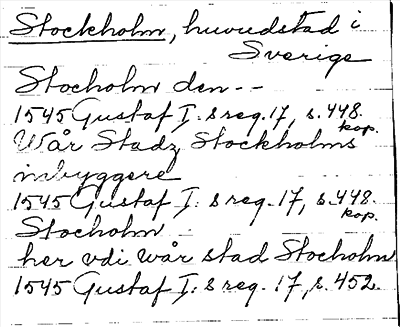 Stockholm, huvudstad i
Sverige
Stocholm den --
1545 Gustaf I: s reg. 17, s. 448.
kop.
Wår Stadz Stockholms
inbyggere
1545 Gustaf I: s reg. 17, s. 448.
kop.
Stocholm
her vdi wår stad Stocholm
1545 Gustaf I: s reg. 17, s. 452.